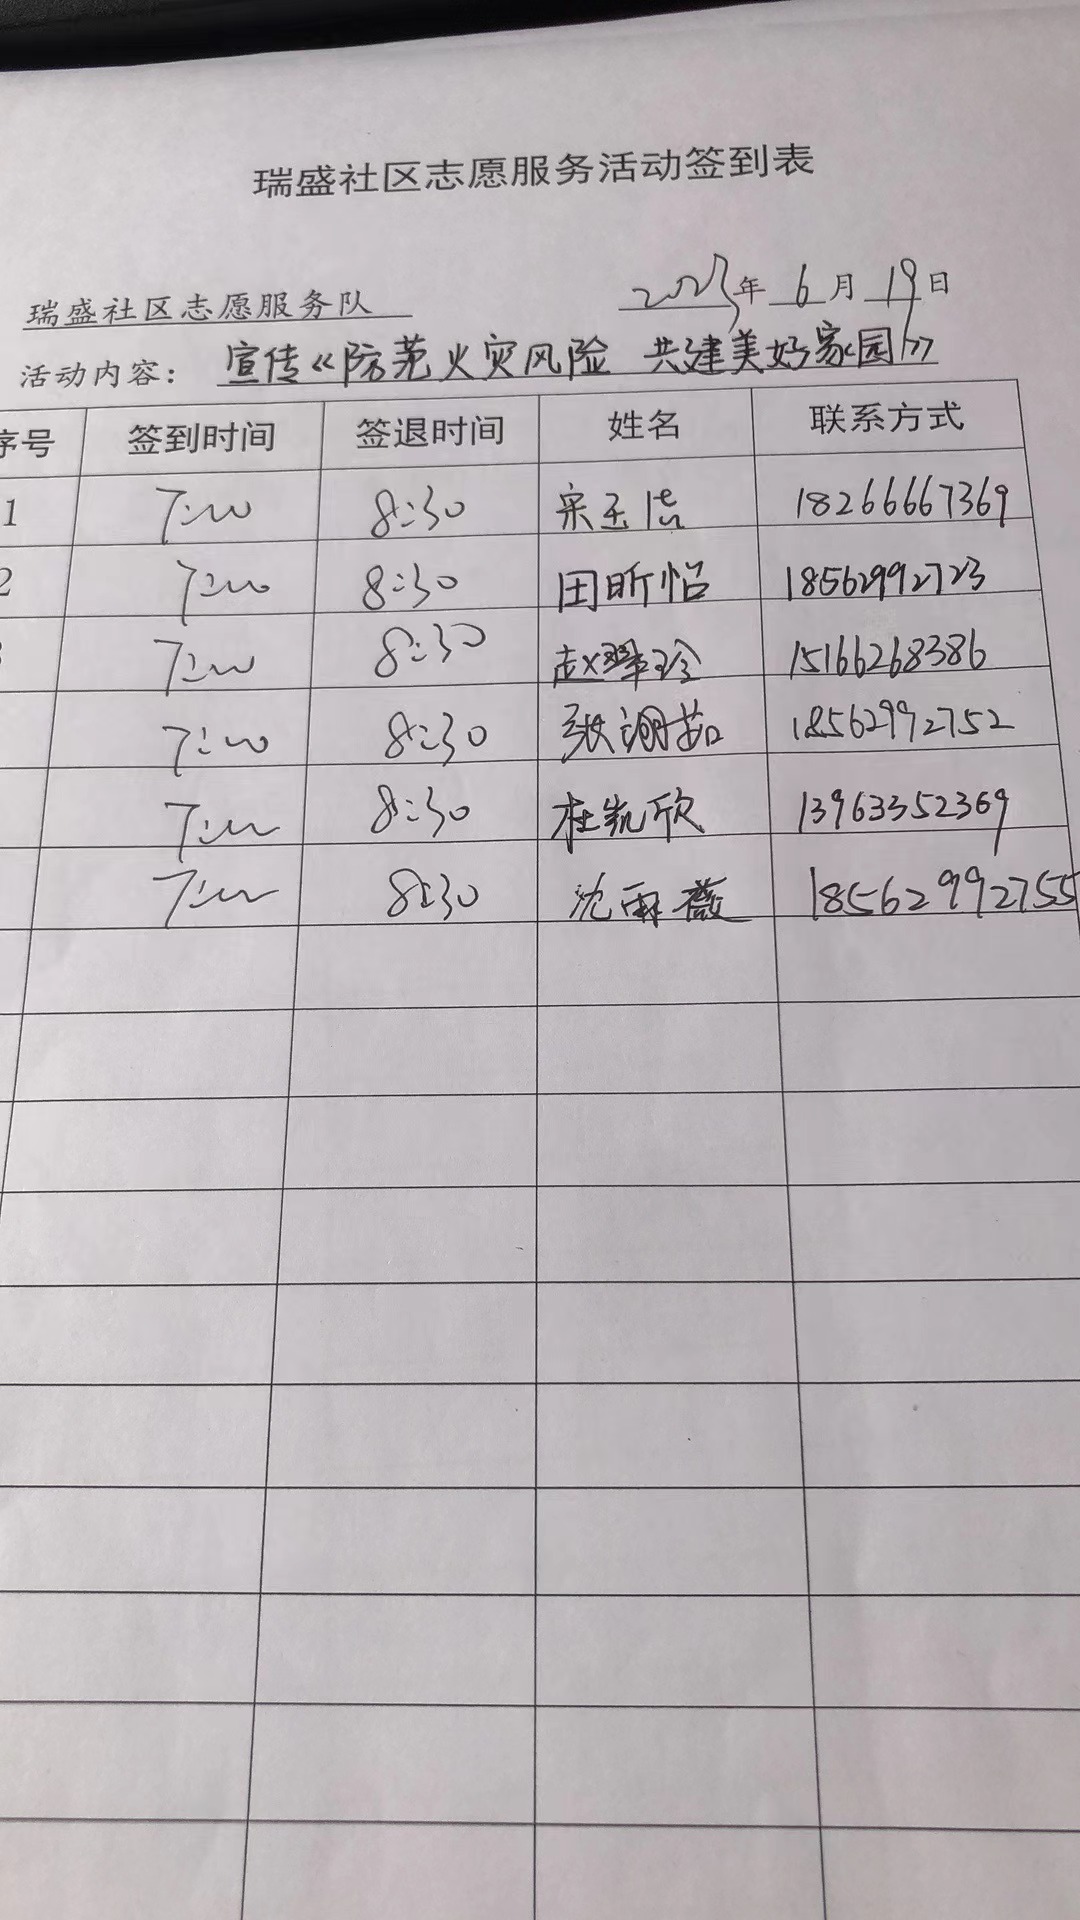 瑞盛社区志愿服务活动签到表
瑞盛社区志愿服务队 2023年 6月 19日
活动内容： 宣传《防范火灾风险 共建美好家园》
序号 签到时间 签退时间 姓名 联系方式
1 7:00 8:30 宋玉洁 18266667369
2 7:00 8:30 田昕怡 18562992723
7:00 8:30 赵翠玲 15166268386
7:00 8:30 张 茹 18562992752
7:00 8:30 杜凯欣 13963352369
7:00 8:30 沈雨薇 18562992755